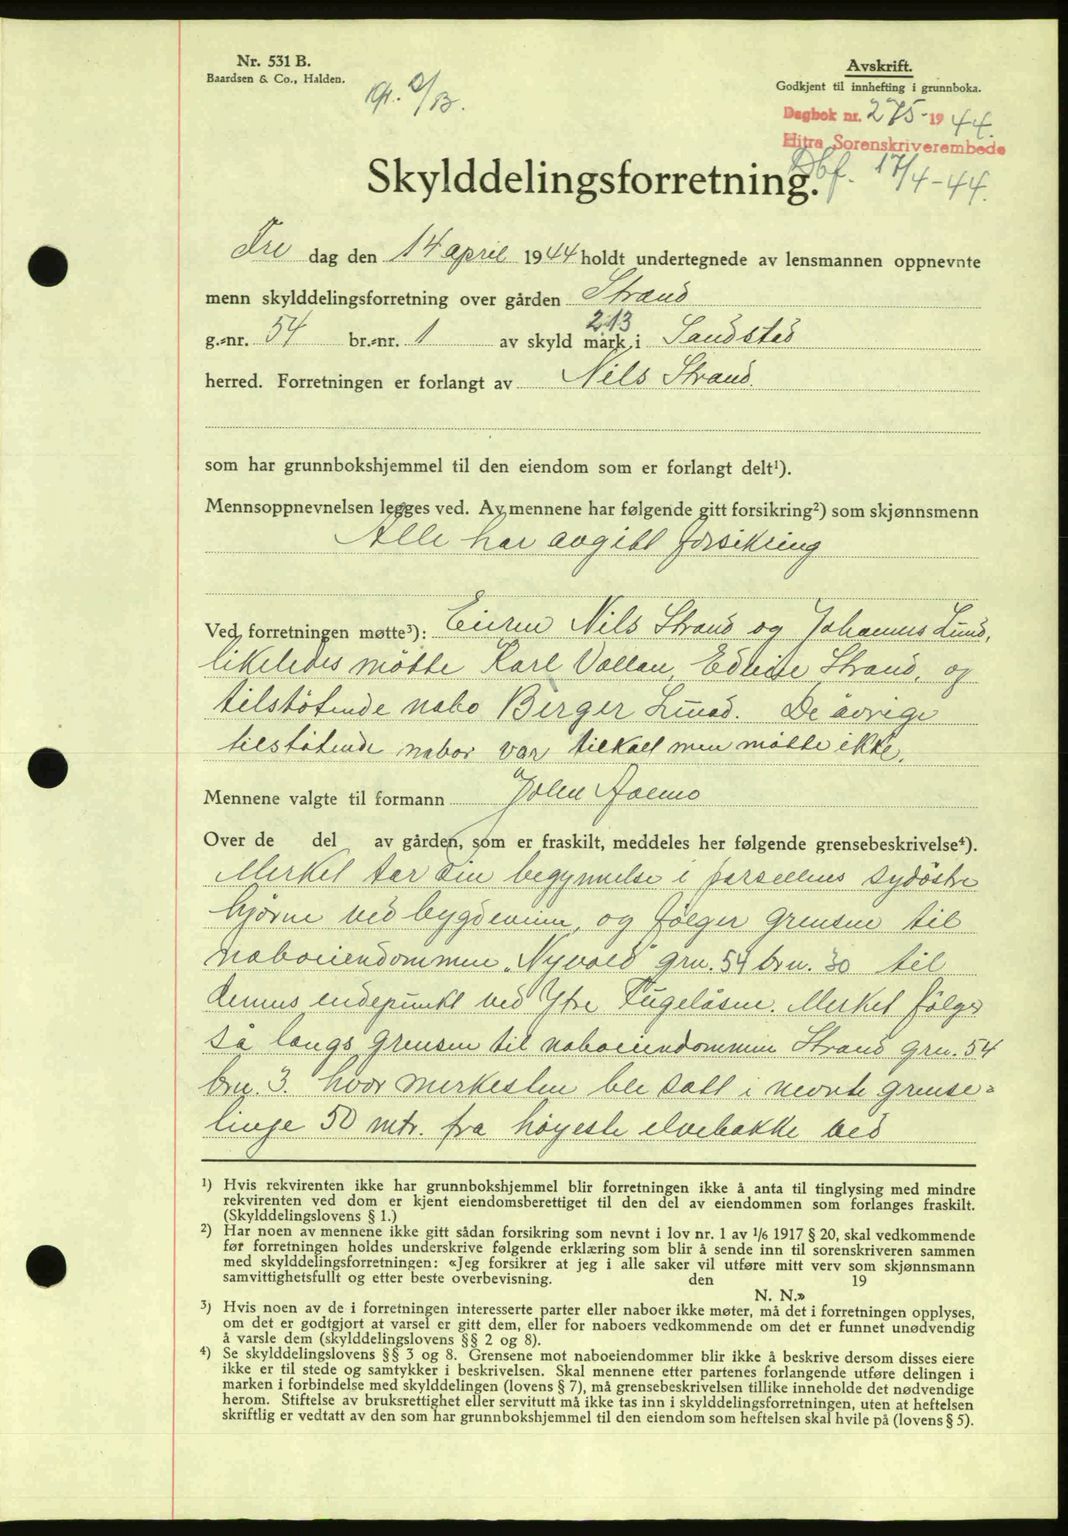 Nr. 531 B.
Baardsen & Co., Halden.
Avskrift.
Godkjent til innhefting i grunnboka.
Dagbok nr. 275-1944.
Hitra Sorenskriverembede
Dbf. 17/4-44.
Skylddelingsforretning.
Fre dag den 14 april 1944 holdt undertegnede av lensmannen oppnevnte
menn skylddelingsforretning over gården Strand
g.-nr. 54 br.-nr. 1 av skyld mark 2.13 i Sandstad
herred. Forretningen er forlangt av Nils Strand.
som har grunnbokshjemmel til den eiendom som er forlangt delt¹).
Mennsoppnevnelsen legges ved. Av mennene har følgende gitt forsikring²) som skjønnsmenn
Alle har avgitt forsikring
Ved forretningen møtte³): Eieren Nils Strand og Johannes Lund,
likeledes møtte Karl Vollan, Edvin Strand, og
tilstøtende nabo Birger Lund. De øvrige
tilstøtende naboer var tilkalt men møtte ikke.
Mennene valgte til formann John Aalmo
Over de del av gården, som er fraskilt, meddeles her følgende grensebeskrivelse⁴).
Merket tar sin begynnelse i parsellens sydøstre
hjørne ved bygdeveien, og følger grensen til
naboeiendommen "Nyvold" grn. 54 brn. 30 til
dennes endepunkt ved Ytre Fugelåsen. Merket følger
så langs grensen til naboeiendommen Strand grn. 54
brn. 3. hvor merkesten ble satt i nevnte grense-
linje 50 mtr. fra høyeste elvebakke ved
¹) Hvis rekvirenten ikke har grunnbokshjemmel blir forretningen ikke å anta til tinglysing med mindre
rekvirenten ved dom er kjent eiendomsberettiget til den del av eiendommen som forlanges fraskilt.
(Skylddelingslovens § 1.)
²) Har noen av mennene ikke gitt sådan forsikring som nevnt i lov nr. 1 av 1/6 1917 § 20, skal vedkommende
før forretningen holdes underskrive følgende erklæring som blir å sende inn til sorenskriveren sammen
med skylddelingsforretningen: «Jeg forsikrer at jeg i alle saker vil utføre mitt verv som skjønnsmann
samvittighetsfullt og etter beste overbevisning. den 19
N. N.»
³) Hvis noen av de i forretningen interesserte parter eller naboer ikke møter, må det i forretningen opplyses,
om det er godtgjort at varsel er gitt dem, eller for naboers vedkommende om det er funnet unødvendig
å varsle dem (skylddelingslovens §§ 2 og 8).
⁴) Se skylddelingslovens §§ 3 og 8. Grensene mot naboeiendommer blir ikke å beskrive dersom disses eiere
ikke er til stede og samtykker i beskrivelsen. Skal mennene etter partenes forlangende utføre delingen i
marken i forbindelse med skylddelingen (lovens § 7), må grensebeskrivelsen tillike inneholde det nødvendige
herom. Stiftelse av bruksrettighet eller servitutt må ikke tas inn i skylddelingsforretningen, uten at heftelsen
skriftlig er vedtatt av den som har grunnbokshjemmel til den eiendom som heftelsen skal hvile på (lovens § 5).